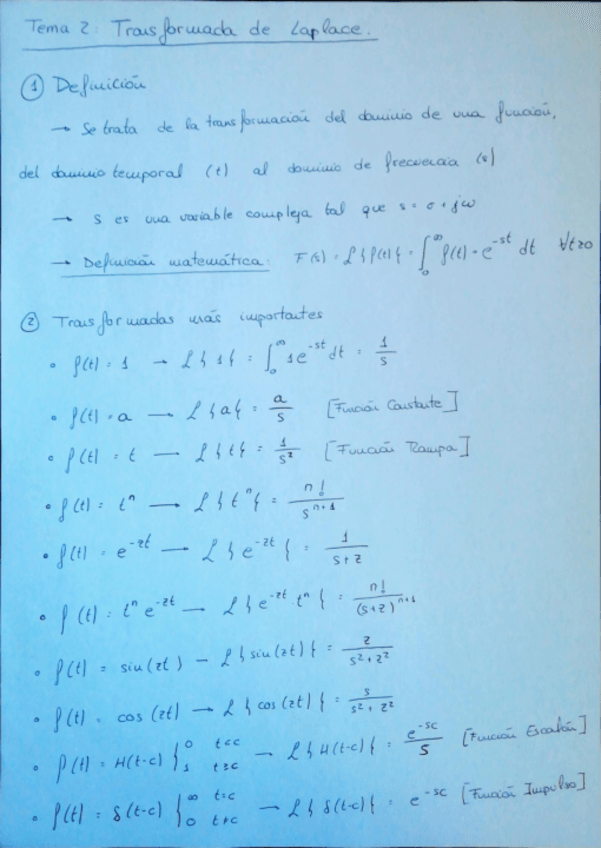 Tema 2: Transformada de Laplace.
① Definición
→ Se trata de la transformación del dominio de una función,
del dominio temporal (t) al dominio de frecuencia (s)
→ s es una variable compleja tal que s = σ + jω
→ Definición matemática: F(s) = L{f(t)} = ∫₀^∞ f(t) · e^-st dt ∀t≥0
② Transformadas más importantes
• f(t) = 1 → L{1} = ∫₀^∞ 1e^-st dt = 1/s
• f(t) = a → L{a} = a/s [Función Constante]
• f(t) = t → L{t} = 1/s² [Función Rampa]
• f(t) = t^n → L{t^n} = n!/s^n+1
• f(t) = e^-zt → L{e^-zt} = 1/(s+z)
• f(t) = t^n e^-zt → L{e^-zt t^n} = n!/(s+z)^n+1
• f(t) = sin(zt) – L{sin(zt)} = z/(s²+z²)
• f(t) = cos(zt) → L{cos(zt)} = s/(s²+z²)
• f(t) = H(t-c) { 0 t<c 1 t≥c → L{H(t-c)} = e^-sc/s [Función Escalón]
• f(t) = δ(t-c) { ∞ t=c 0 t≠c → L{δ(t-c)} = e^-sc [Función Impulso]